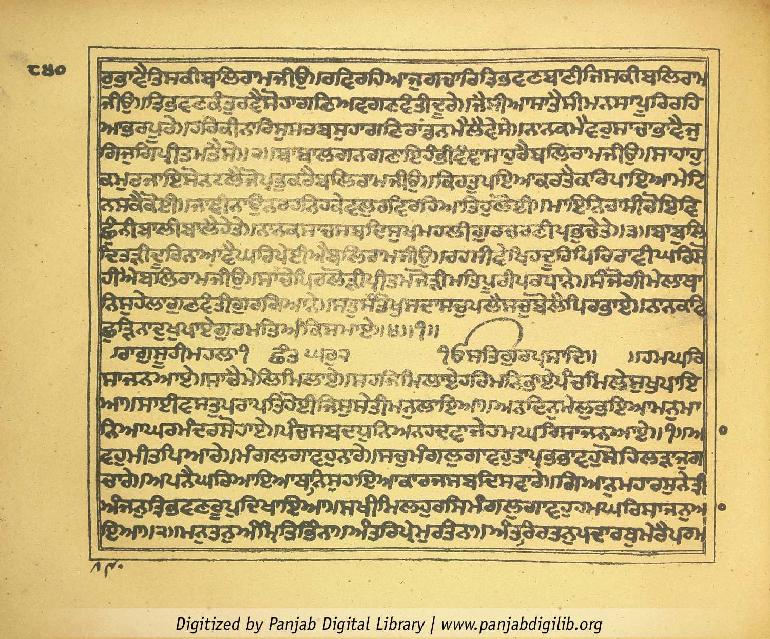 ੮੪੦
ਰੁਭਾਣੈਤਿਸਕੀਬਲਿਰਾਮਜੀਉ॥ਰਵਿਰਹਿਆਜੁਗਚਾਰਿਤ੍ਰਿਭਵਣਬਾਣੀਜਿਸਕੀਬਲਿਰਾਮ
ਜੀਉ॥ਤ੍ਰਿਭਵਣਕੰਤੁਰਵੈਸੋਹਾਗਣਿਅਵਗਣਵੰਤੀਦੂਰੇ॥ਜੈਸੀਆਸਾਤੈਸੀਮਨਸਾਪੂਰਿਰਹਿ
ਆਭਰਪੂਰੇ॥ਹਰਿਕੀਨਾਰਿਸੁਸਰਬਸੁਹਾਗਣਿਰਾਂਡਨਮੈਲੈਵੇਸੇ॥ਨਾਨਕਮੈਵਰੁਸਾਚਾਭਾਵੈਜੁ
ਗਿਜੁਗਿਪ੍ਰੀਤਮਤੈਸੇ॥੨॥ਬਾਬਾਲਗਨੁਗਣਾਇਹੰਭੀਵੰਞਾਸਾਹੁਰੈਬਲਿਰਾਮਜੀਉ॥ਸਾਹਾਹੁ
ਕਮੁਰਜਾਇਸੋਨਟਲੈਜੋਪ੍ਰਭੁਕਰੈਬਲਿਰਾਮਜੀਉ॥ਕਿਰਤੁਪਇਆਕਰਤੈਕਰਿਪਾਇਆਮੇਟਿ
ਨਸਕੈਕੋਈ॥ਜਾਞੀਨਾਉਨਰਹਨਿਹਕੇਵਲੁਰਵਿਰਹਿਆਤਿਹੁਲੋਈ॥ਮਾਇਨਿਰਾਸੀਰੋਇਵਿ
ਛੁੰਨੀਬਾਲੀਬਾਲੈਹੇਤੇ॥ਨਾਨਕਸਾਚਸਬਦਿਸੁਖਮਹਲੀਗੁਰਚਰਣੀਪ੍ਰਭੁਚੇਤੇ॥੩॥ਬਾਬੁਲਿ
ਦਿਤੜੀਦੂਰਿਨਾਆਵੈਘਰਿਪੇਈਐਬਲਿਰਾਮਜੀਉ॥ਰਹਸੀਵੇਖਿਹਦੂਰਿਪਿਰਿਰਾਵੀਘਰਿਸੋ
ਹੀਐਬਲਿਰਾਮਜੀਉ॥ਸਾਚੇਪਿਰਲੋੜੀਪ੍ਰੀਤਮਜੋੜੀਮਤਿਪੂਰੀਪਰਧਾਨੇ॥ਸੰਜੋਗੀਮੇਲਾਥਾ
ਨਿਸੁਹੇਲਾਗੁਣਵੰਤੀਗੁਰਗਿਆਨੇ॥ਸਤੁਸੰਤੋਖੁਸਦਾਸਚੁਪਲੈਸਚੁਬੋਲੈਪਿਰਭਾਏ॥ਨਾਨਕਵਿ
ਛੁੜਿਨਾਦੁਖੁਪਾਏਗੁਰਮਤਿਅੰਕਿਸਮਾਏ॥੪॥੧॥
ਰਾਗੁਸੂਹੀਮਹਲਾ੧ ਛੰਤ ਘਰੁ੨ ੴਸਤਿਗੁਰਪ੍ਰਸਾਦਿ॥ ॥ਹਮਘਰਿ
ਸਾਜਨਆਏ॥ਸਾਚੈਮੇਲਿਮਿਲਾਏ॥ਸਹਜਿਮਿਲਾਏਹਰਿਮਨਿਭਾਏਪੰਚਮਿਲੇਸੁਖੁਪਾਇ
ਆ॥ਸਾਈਵਸਤੁਪਰਾਪਤਿਹੋਈਜਿਸੁਸੇਤੀਮਨੁਲਾਇਆ॥ਅਨਦਿਨੁਮੇਲੁਭਇਆਮਨੁਮਾ
ਨਿਆਘਰਮੰਦਰਸੋਹਾਏ॥ਪੰਚਸਬਦਧੁਨਿਅਨਹਦਵਾਜੇਹਮਘਰਿਸਾਜਨਆਏ॥੧॥ਆ
ਵਹੁਮੀਤਪਿਆਰੇ॥ਮੰਗਲਗਾਵਹੁਨਾਰੇ॥ਸਚੁਮੰਗਲੁਗਾਵਹੁਤਾਪ੍ਰਭਭਾਵਹੁਸੋਹਿਲੜਾਜੁਗ
ਚਾਰੇ॥ਅਪਨੈਘਰਿਆਇਆਥਾਨਿਸੁਹਾਇਆਕਾਰਜਸਬਦਿਸਵਾਰੇ॥ਗਿਆਨਮਹਾਰਸੁਨੇਤ੍ਰੀ
ਅੰਜਨੁਤ੍ਰਿਭਵਣਰੂਪੁਦਿਖਾਇਆ॥ਸਖੀਮਿਲਹੁਰਸਿਮੰਗਲੁਗਾਵਹੁਹਮਘਰਿਸਾਜਨੁਆ
ਇਆ॥੨॥ਮਨੁਤਨੁਅੰਮ੍ਰਿਤਿਭਿੰਨਾ॥ਅੰਤਰਿਪ੍ਰੇਮੁਰਤੰਨਾ॥ਅੰਤਰਿਰਤਨੁਪਦਾਰਥੁਮੇਰੈਪਰਮ
Digitized by Panjab Digital Library | www.panjabdigilib.org